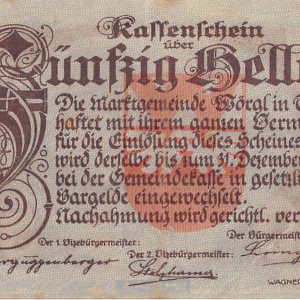 Kassenschein
über
Fünfzig Hell
Die Marktgemeinde Wörgl in
haftet mit ihrem ganzen Verm
für die Einlösung dieses Scheines
wird derselbe bis zum 31. Dezember
bei der Gemeindekasse in gesetzli
Bargelde eingewechselt.
Nachahmung wird gerichtl. ver
Der 1. Vizebürgermeister:
Der 2. Vizebürgermeister:
Der Bürgermeiste
WAGNER